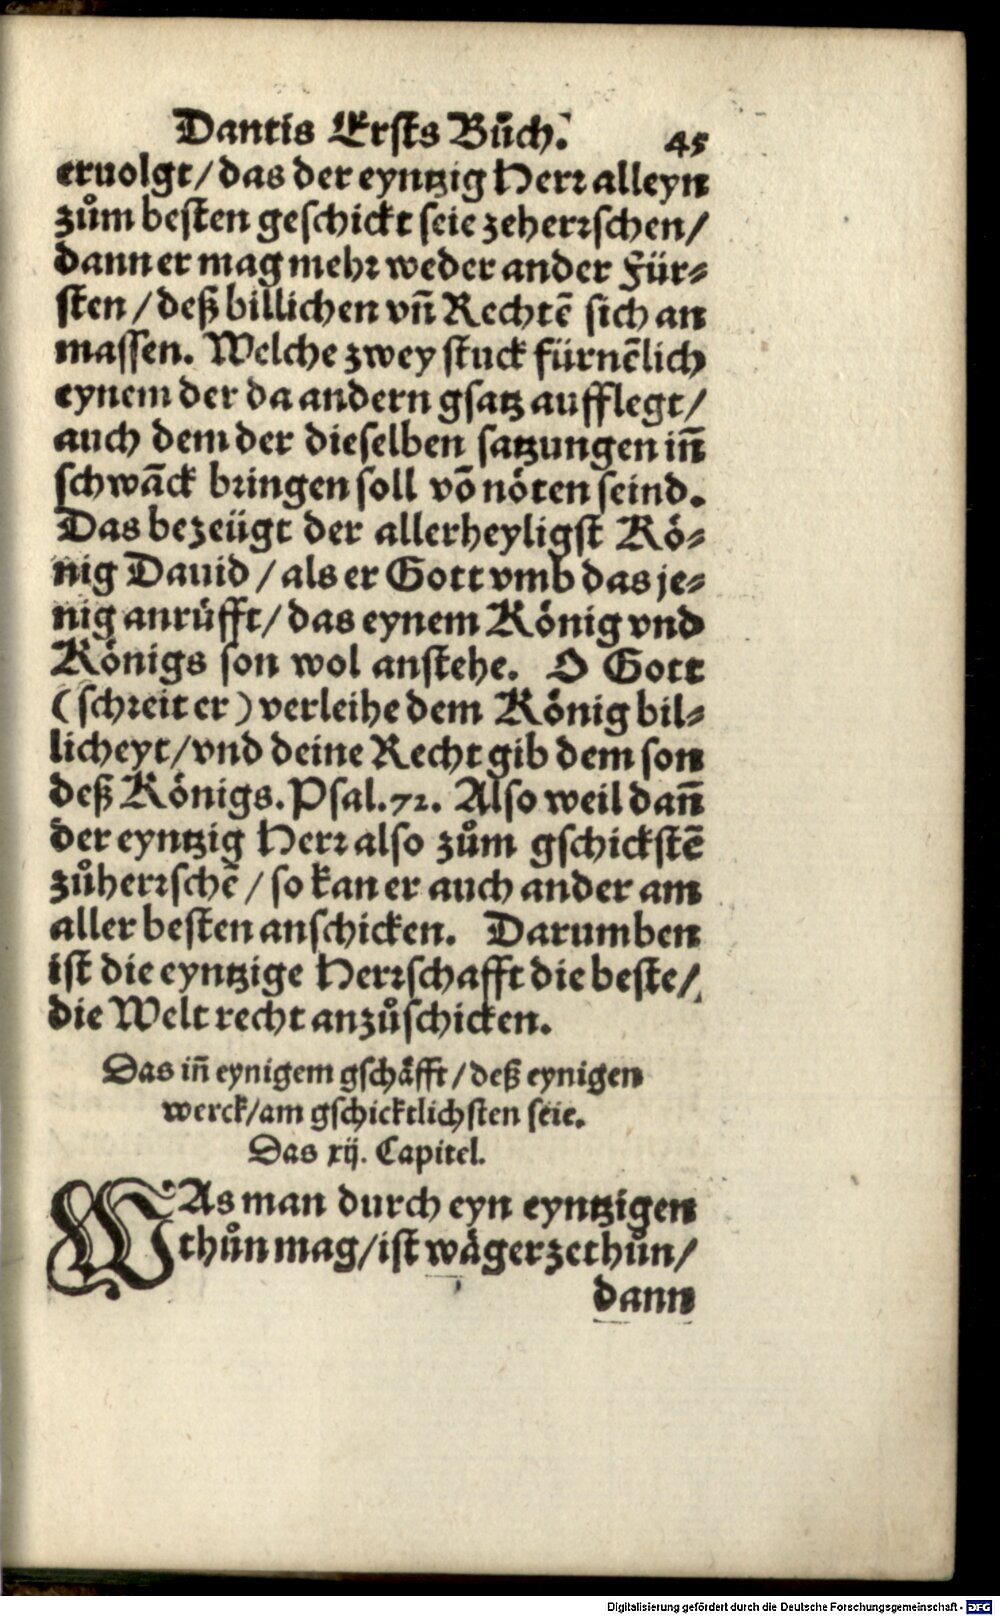 Dantis Ersts Bůch. 45
eruolgt/das der eyntzig Herr alleyn
zům besten geschickt seie zeherrschen/
dann er mag mehr weder ander Für⸗
sten/deß billichen vñ Rechtē sich an
massen. Welche zwey stuck fürnēlich
eynem der da andern gsatz aufflegt/
auch dem der dieselben satzungen iñ
schwāck bringen soll vō nöten seind.
Das bezeügt der allerheyligst Kö⸗
nig Dauid/als er Gott vmb das je⸗
nig anrüfft/das eynem König vnd
Königs son wol anstehe. O Gott
(schreit er) verleihe dem König bil⸗
licheyt/vnd deine Recht gib dem son
deß Königs. Psal.72. Also weil dañ
der eyntzig Herr also zům gschickstē
zůherrschē/so kan er auch ander am
aller besten anschicken. Darumben
ist die eyntzige Herrschafft die beste/
die Welt recht anzůschicken.
Das iñ eynigem gschäfft/deß eynigen
werck/am gschicktlichsten seie.
Das xij. Capitel.
WAs man durch eyn eyntzigen
thůn mag/ist wäger zethůn/
dann
Digitalisierung gefördert durch die Deutsche Forschungsgemeinschaft - DFG